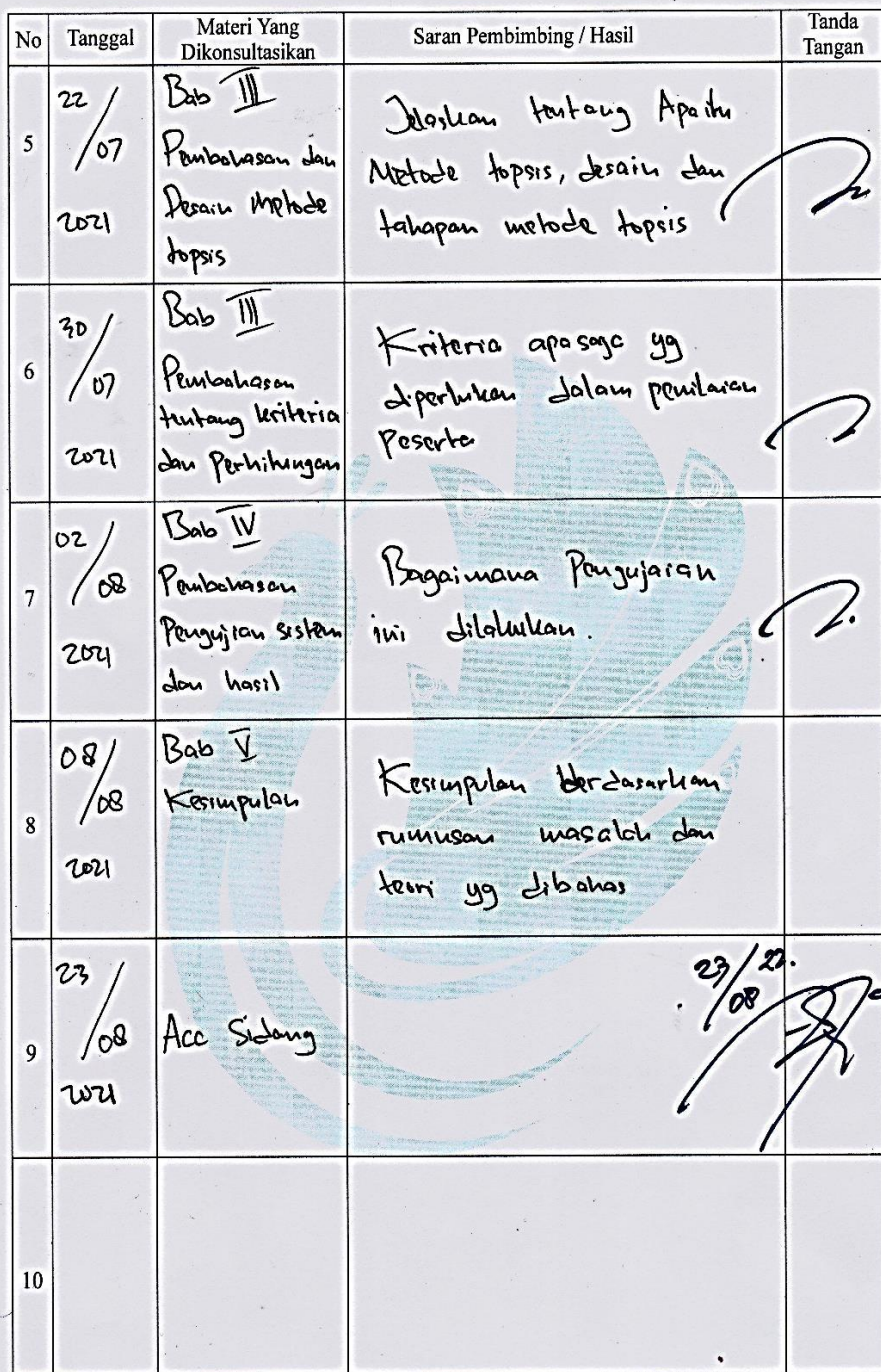 No Tanggal Materi Yang Dikonsultasikan Saran Pembimbing / Hasil Tanda Tangan
5
22/07
2021
Bab III
Pembahasan dan
Desain Metode
topsis
Jelaskan tentang Apa itu
Metode topsis, desain dan
tahapan metode topsis
6
30/07
2021
Bab III
Pembahasan
tentang kriteria
dan Perhitungan
Kriteria apa saja yg
diperlukan dalam penilaian
Peserta
7
02/08
2021
Bab IV
Pembahasan
Pengujian sistem
dan hasil
Bagaimana Pengujaian
ini dilakukan.
8
08/08
2021
Bab V
Kesimpulan
Kesimpulan berdasarkan
rumusan masalah dan
teori yg dibahas
9
23/08
2021
Acc Sidang
23/08
10